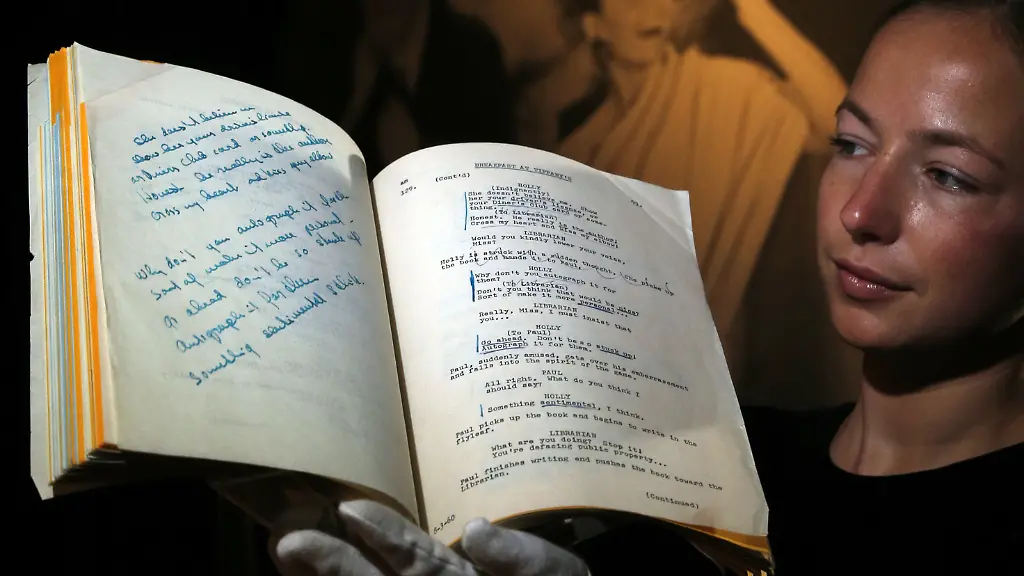 She doesn't believe me
show her your driver's license
or Diners club card or something
Honest. He really is the author
cross my heart and kiss my elbow
Why don't you autograph it
sort of make it more personal
Go ahead don't be so stuck up
autograph it for them
something sentimental I think
BREAKFAST AT TIFFANY'S
129. (Cont'd)
HOLLY
(Indignantly)
She doesn't believe me. Show
her your driver's license or
your Diner's Club card or some-
thing.
(To Librarian)
Honest. He really is the author.
Cross my heart and kiss my elbow!
LIBRARIAN
Would you kindly lower your voice,
Miss?
Holly is struck with a sudden thought. She picks up
the book and hands it to Paul.
HOLLY
Why don't you autograph it for
them?
(To Librarian)
Don't you think that would be nice?
Sort of make it more personal...
LIBRARIAN
Really, Miss, I must insist that
you...
HOLLY
(To Paul)
Go ahead. Don't be so stuck up!
Autograph it for them.
Paul, suddenly amused, gets over his embarrassment
and falls into the spirit of the game.
PAUL
All right. What do you think I
should say?
HOLLY
Something sentimental, I think.
Paul picks up the book and begins to write in the
flyleaf.
LIBRARIAN
What are you doing? Stop it!
You're defacing public property...
Paul finishes writing and pushes the book toward the
Librarian.
(Continued)
8-3-60